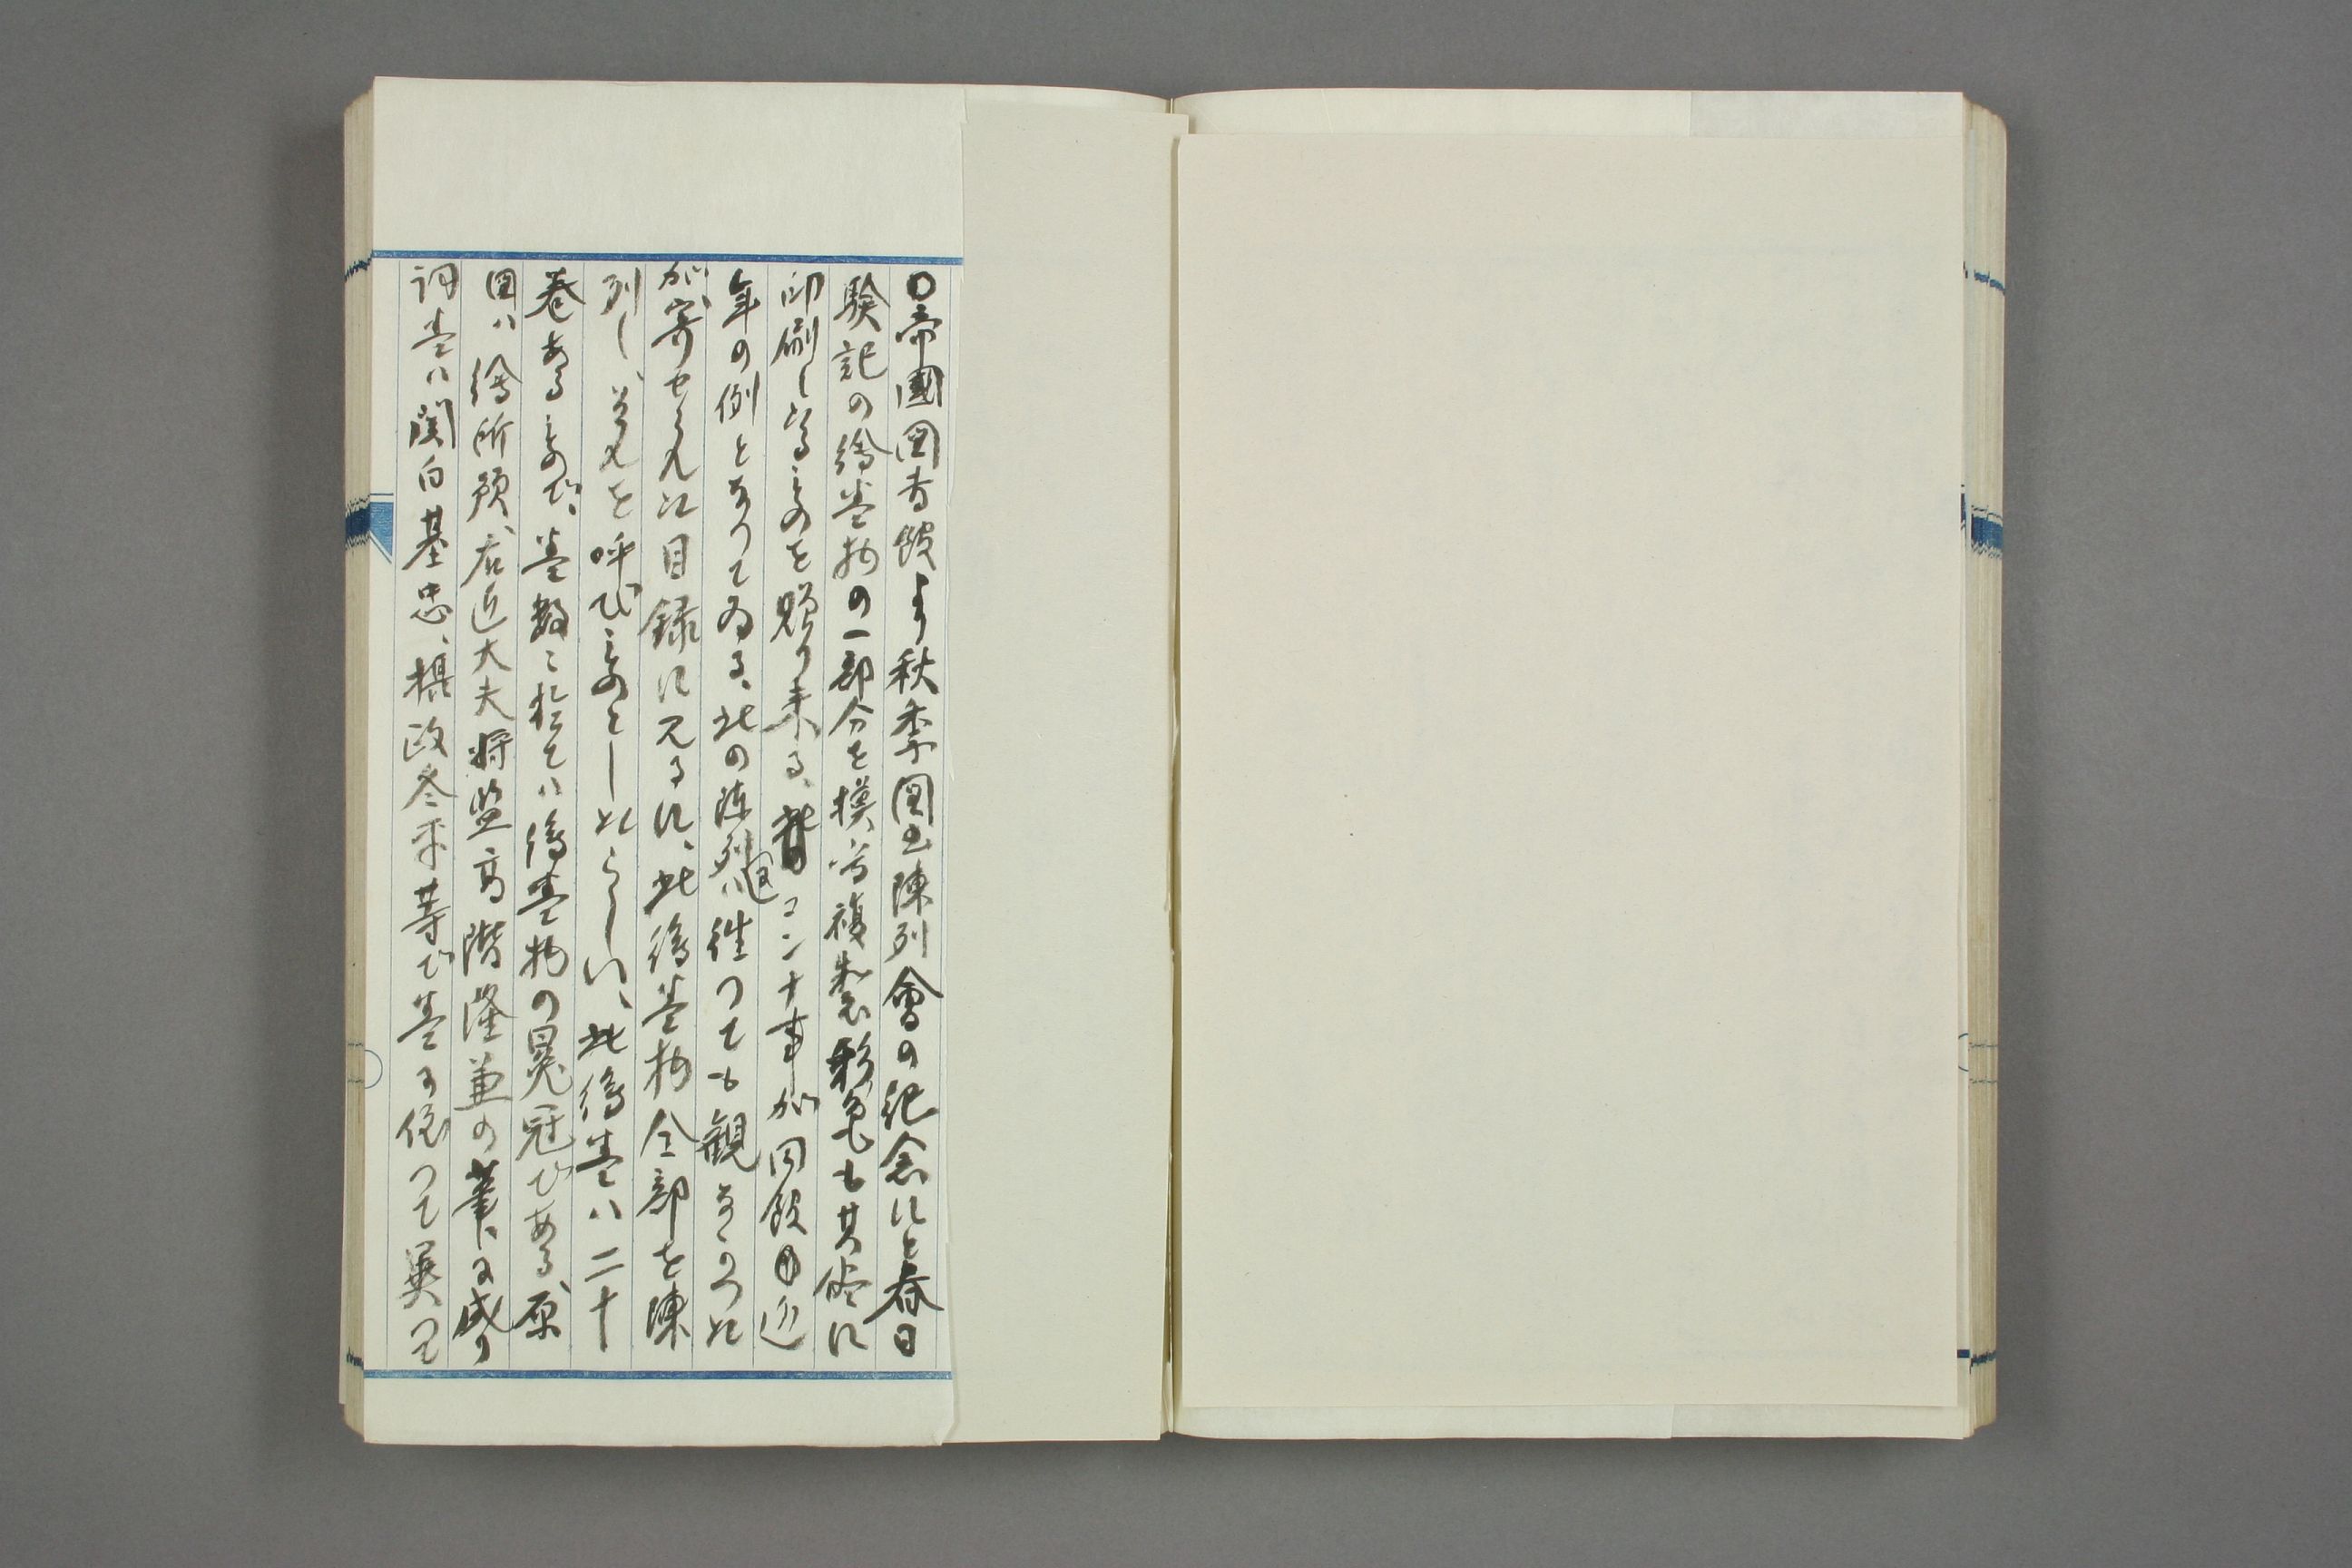 〇帝國図書館より秋季図書陳列會の紀念にと春日
験記の繪巻物の一部分を模写複製彩色も其儘に
印刷し為るものを贈り来る、コンナ事が同館の近
年の例となつてゐる、此の陳列ハ往つても観なかつた
が寄せられた目録に見るに、此繪巻物全部を陳
列し、それを呼びものとしたらしい、此繪巻ハ二十
巻あるもので、巻数に於てハ繪巻物の冕冠である、原
図ハ繪所預、右近大夫将監高階隆兼の筆に成り
詞書ハ関白基忠、摂政冬平等で巻に依つて異つて